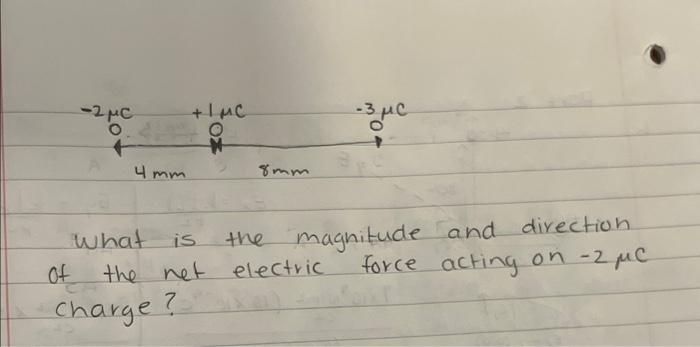 -2 μC +1 μC -3 μC
4 mm 8mm
what is the magnitude and direction
of the net electric force acting on -2 μC
charge?